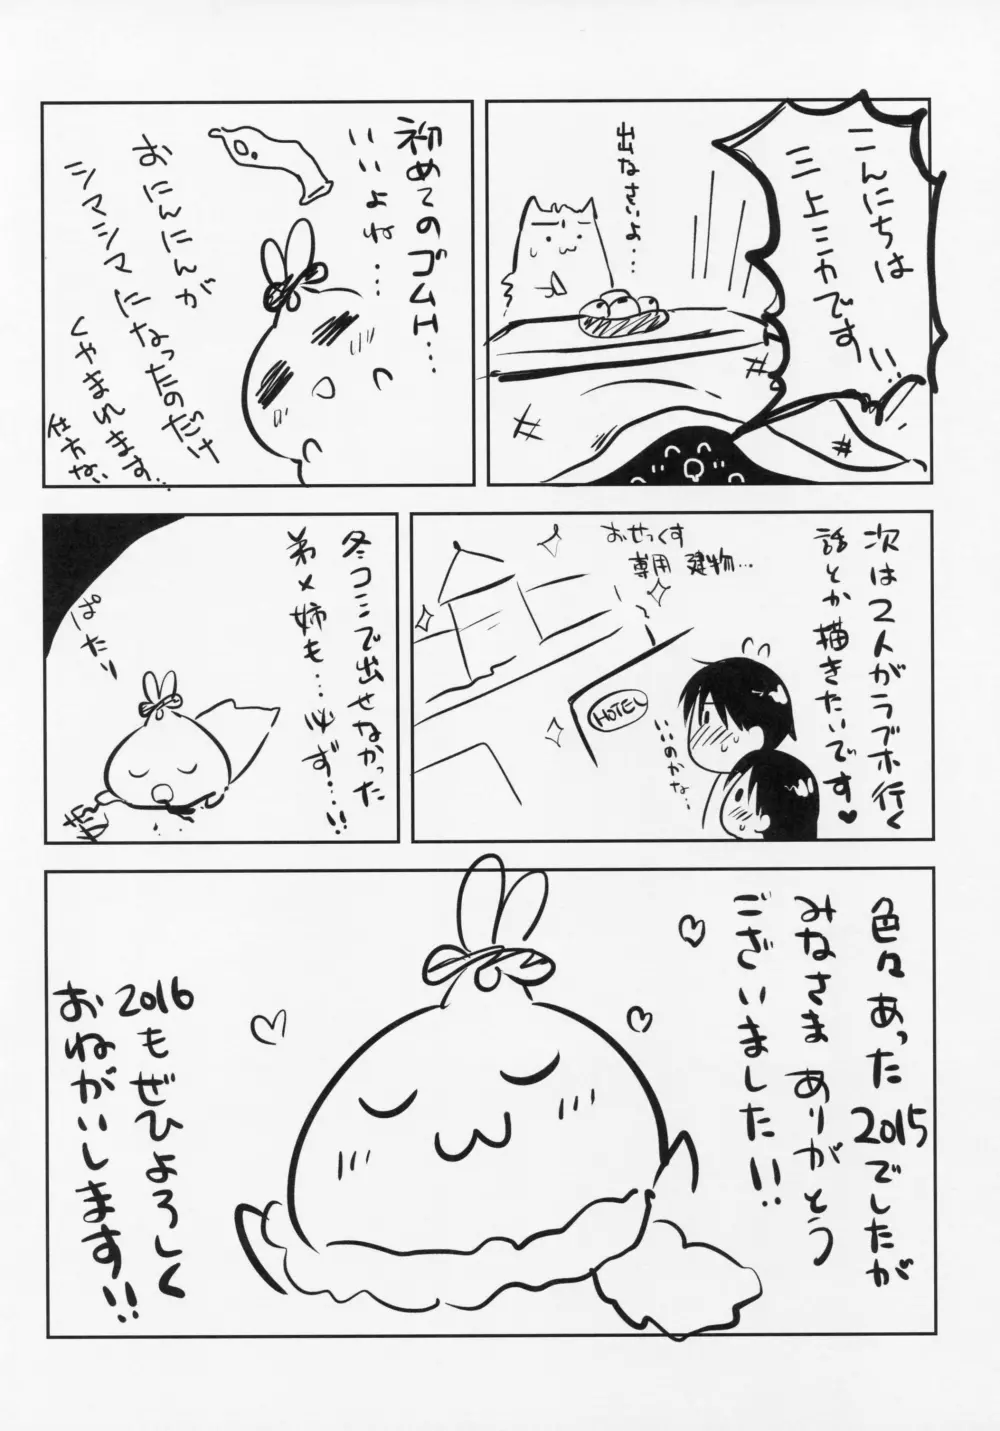 こんにちは
三上ミカです!!
出なさいよ…
初めてのゴムエ…
いいよね…
おにんにんが
シマシマになったのだけ
くやまれます…
仕方ない
次は2人がラブホ行く
話とか描きたいです♥
おせっくす
専用 建物…
HOTEL
いいのかな…
冬コミで出せなかった
弟×姉も…必ず…!!
ぱたり
色々あった2015でしたが
みなさま ありがとう
ございました!!
2016もぜひよろしく
おねがいします!!